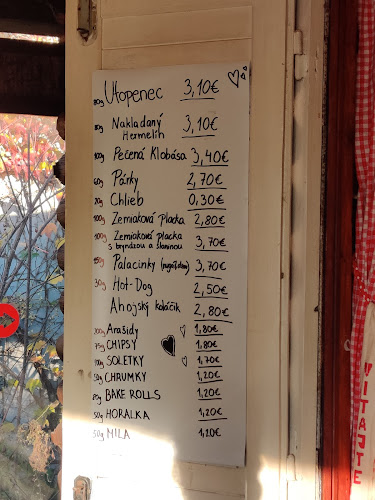 80g Utopenec 3,10€
80g Nakladaný
Hermelín 3,10€
100g Pečená Klobása 3,40€
60g Párky 2,70€
70g Chlieb 0,30€
100g Zemiaková placka 2,80€
100g Zemiaková placka
s bryndzou a slaninou 3,70€
150g Palacinky 3,70€
30g Hot-Dog 2,50€
Ahojský koláčik 2,80€
100g Arašidy 1,80€
75g CHIPSY 1,80€
100g SOLETKY 1,70€
50g CHRUMKY 1,20€
BAKE ROLLS 1,20€
50g HORALKA 1,20€
50g MILA 1,20€
VITAJTE